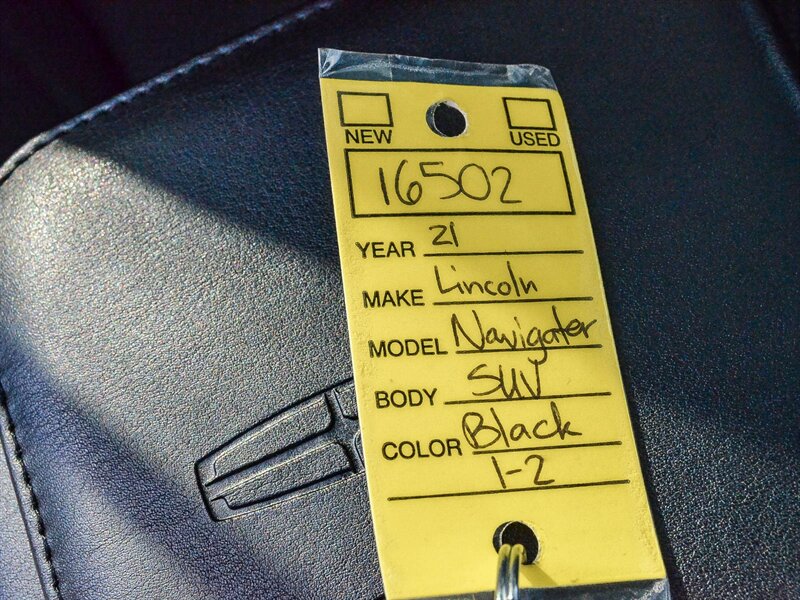 NEW USED
16502
YEAR 21
MAKE Lincoln
MODEL Navigater
BODY SUV
COLOR Black
1-2